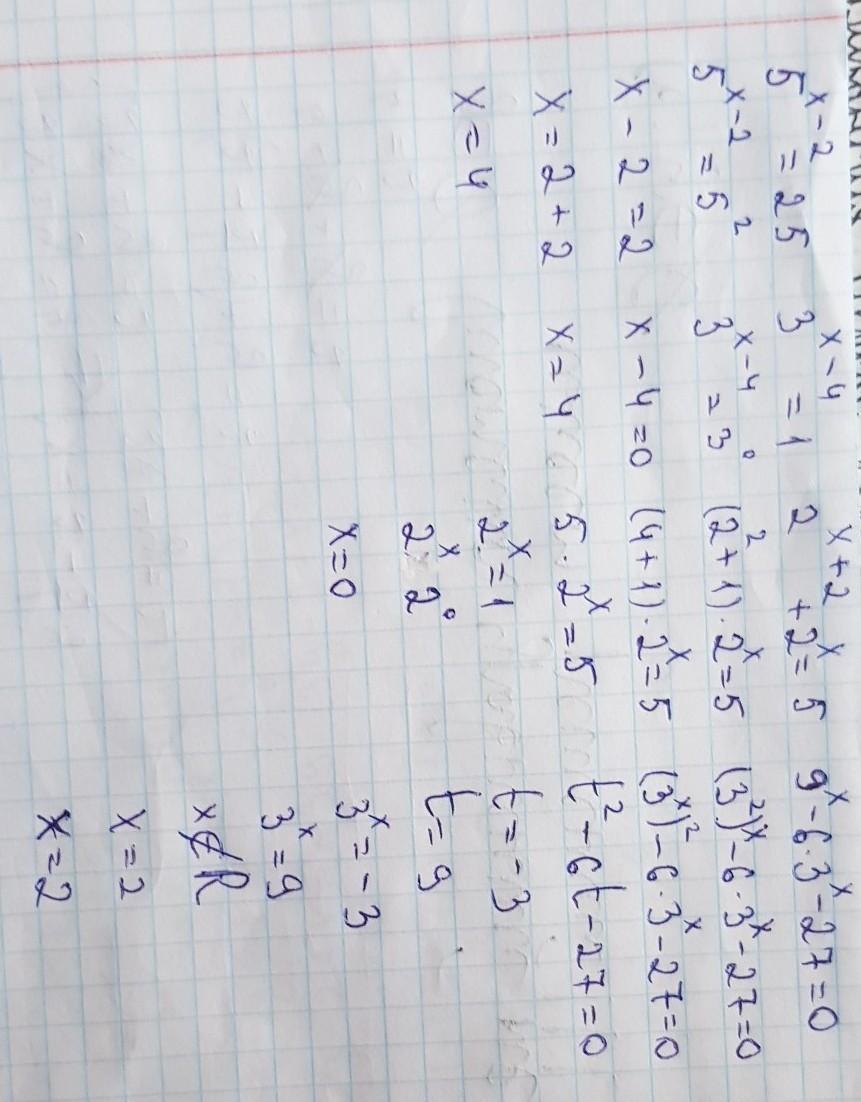 5^(x-2) = 25
5^(x-2) = 5²
x - 2 = 2
x = 2 + 2
x = 4
3^(x-4) = 1
3^(x-4) = 3⁰
x - 4 = 0
x = 4
2^(x+2) + 2^x = 5
(2² + 1) · 2^x = 5
(4 + 1) · 2^x = 5
5 · 2^x = 5
2^x = 1
2^x 2⁰
x = 0
9^x - 6 · 3^x - 27 = 0
(3²)^x - 6 · 3^x - 27 = 0
(3^x)² - 6 · 3^x - 27 = 0
t² - 6t - 27 = 0
t = -3
t = 9
3^x = -3
3^x = 9
x ∉ R
x = 2
x = 2